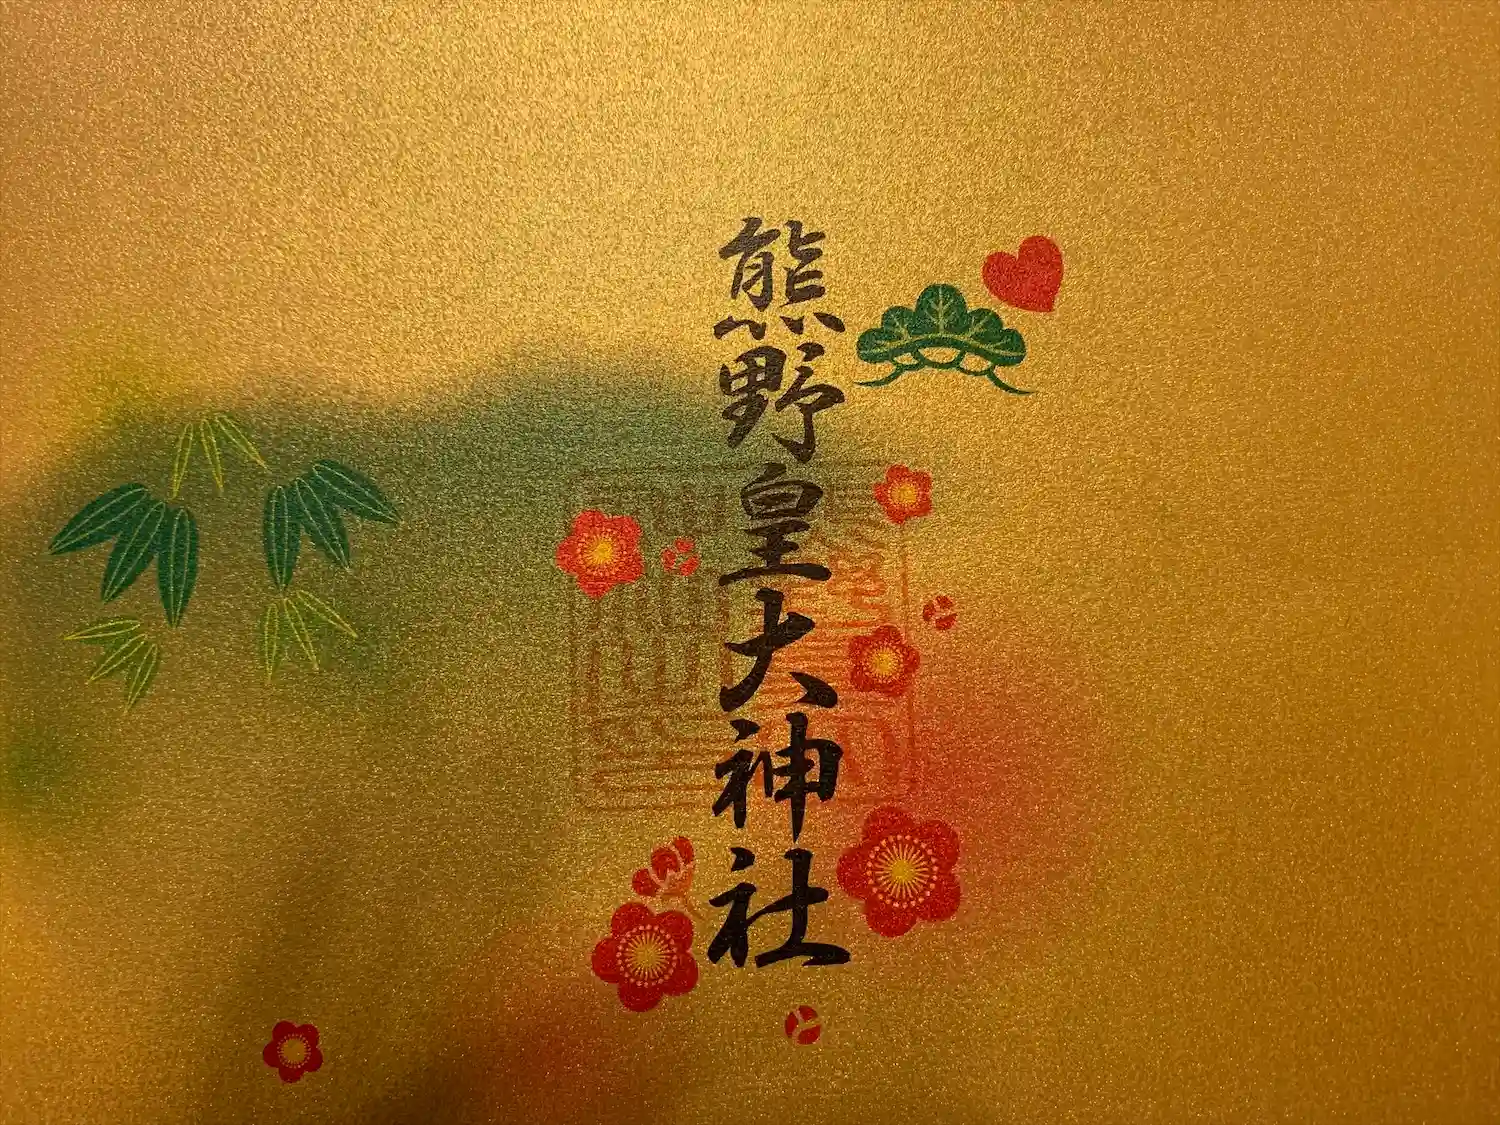 熊野皇大神社